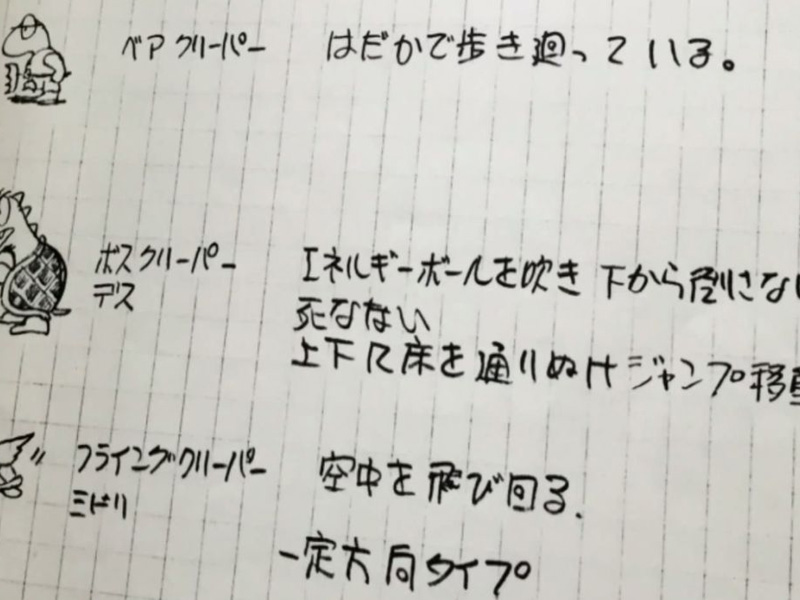 ベアクリーパー はだかで歩き廻っている。
ボスクリーパー エネルギーボールを吹き 下から倒さな
デス 死なない
上下に床を通りぬけジャンプ移
フライングクリーパー 空中を飛び回る.
ミドリ
一定方向タイプ